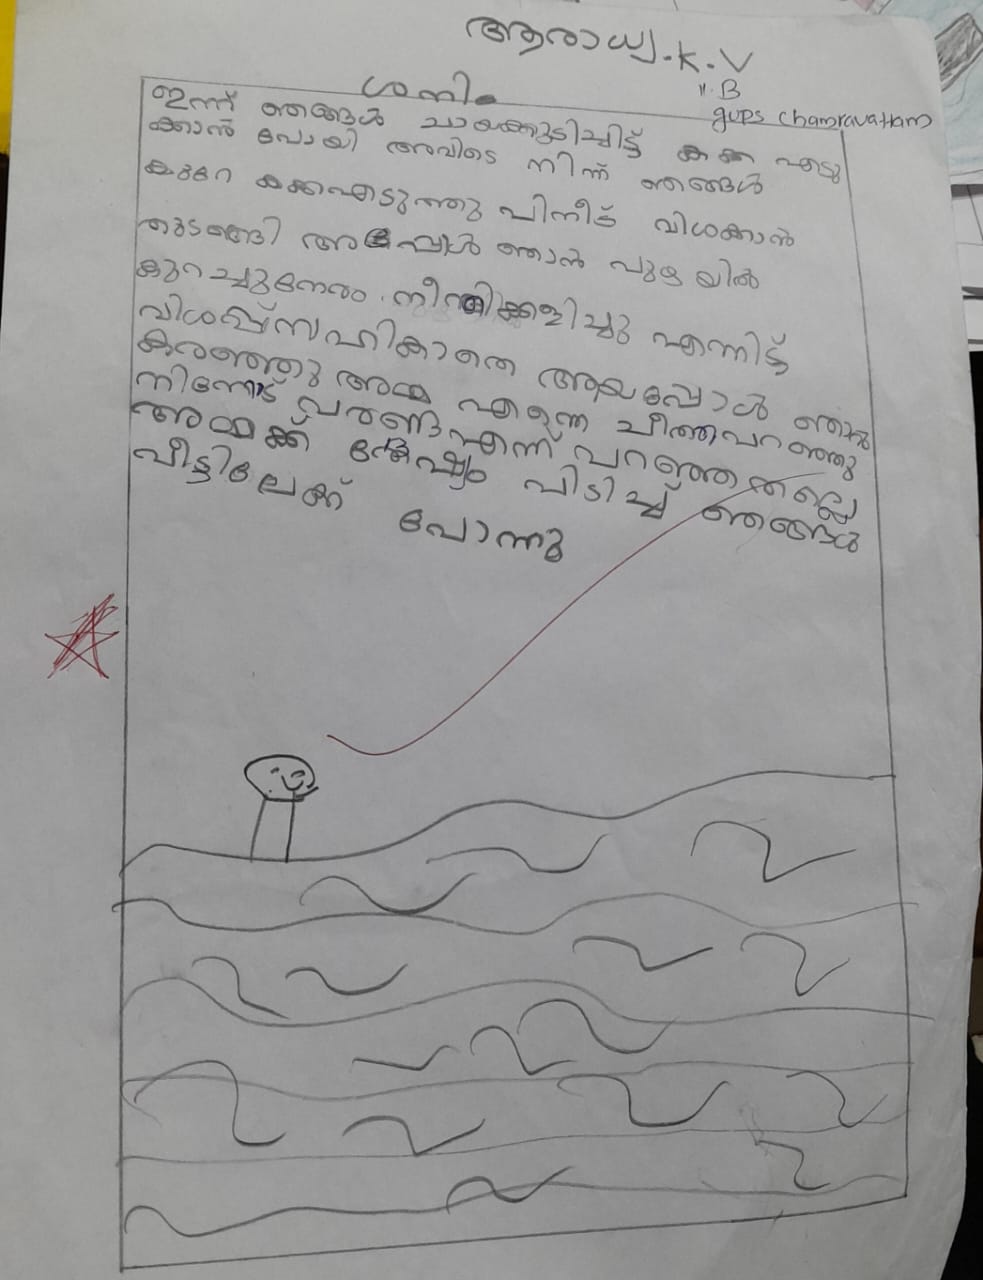 ആരാധ്യ.K.V
II.B
gups Chamravattam
ശനി
ഇന്ന് ഞങ്ങൾ ചായക്കുടിച്ചിട്ട് കക്ക എടു
ക്കാൻ പോയി അവിടെ നിന്ന് ഞങ്ങൾ
കുറേ കക്കഎടുത്തു പിന്നീട് വിശക്കാൻ
തുടങ്ങി അപ്പോൾ ഞാൻ പുഴയിൽ
കുറച്ചുനേരം നീന്തിക്കളിച്ചു എന്നിട്ട്
വിശപ്പ്സഹികാതെ ആയപ്പോൾ ഞാൻ
കരഞ്ഞു അമ്മ എന്നെ ചീത്തപറഞ്ഞു
നിന്നോട് വരണ്ടഎന്ന് പറഞ്ഞതല്ലെ
അമ്മക്ക് ദേഷ്യം പിടിച്ച് ഞങ്ങൾ
വീട്ടിലേക്ക് പോന്നു